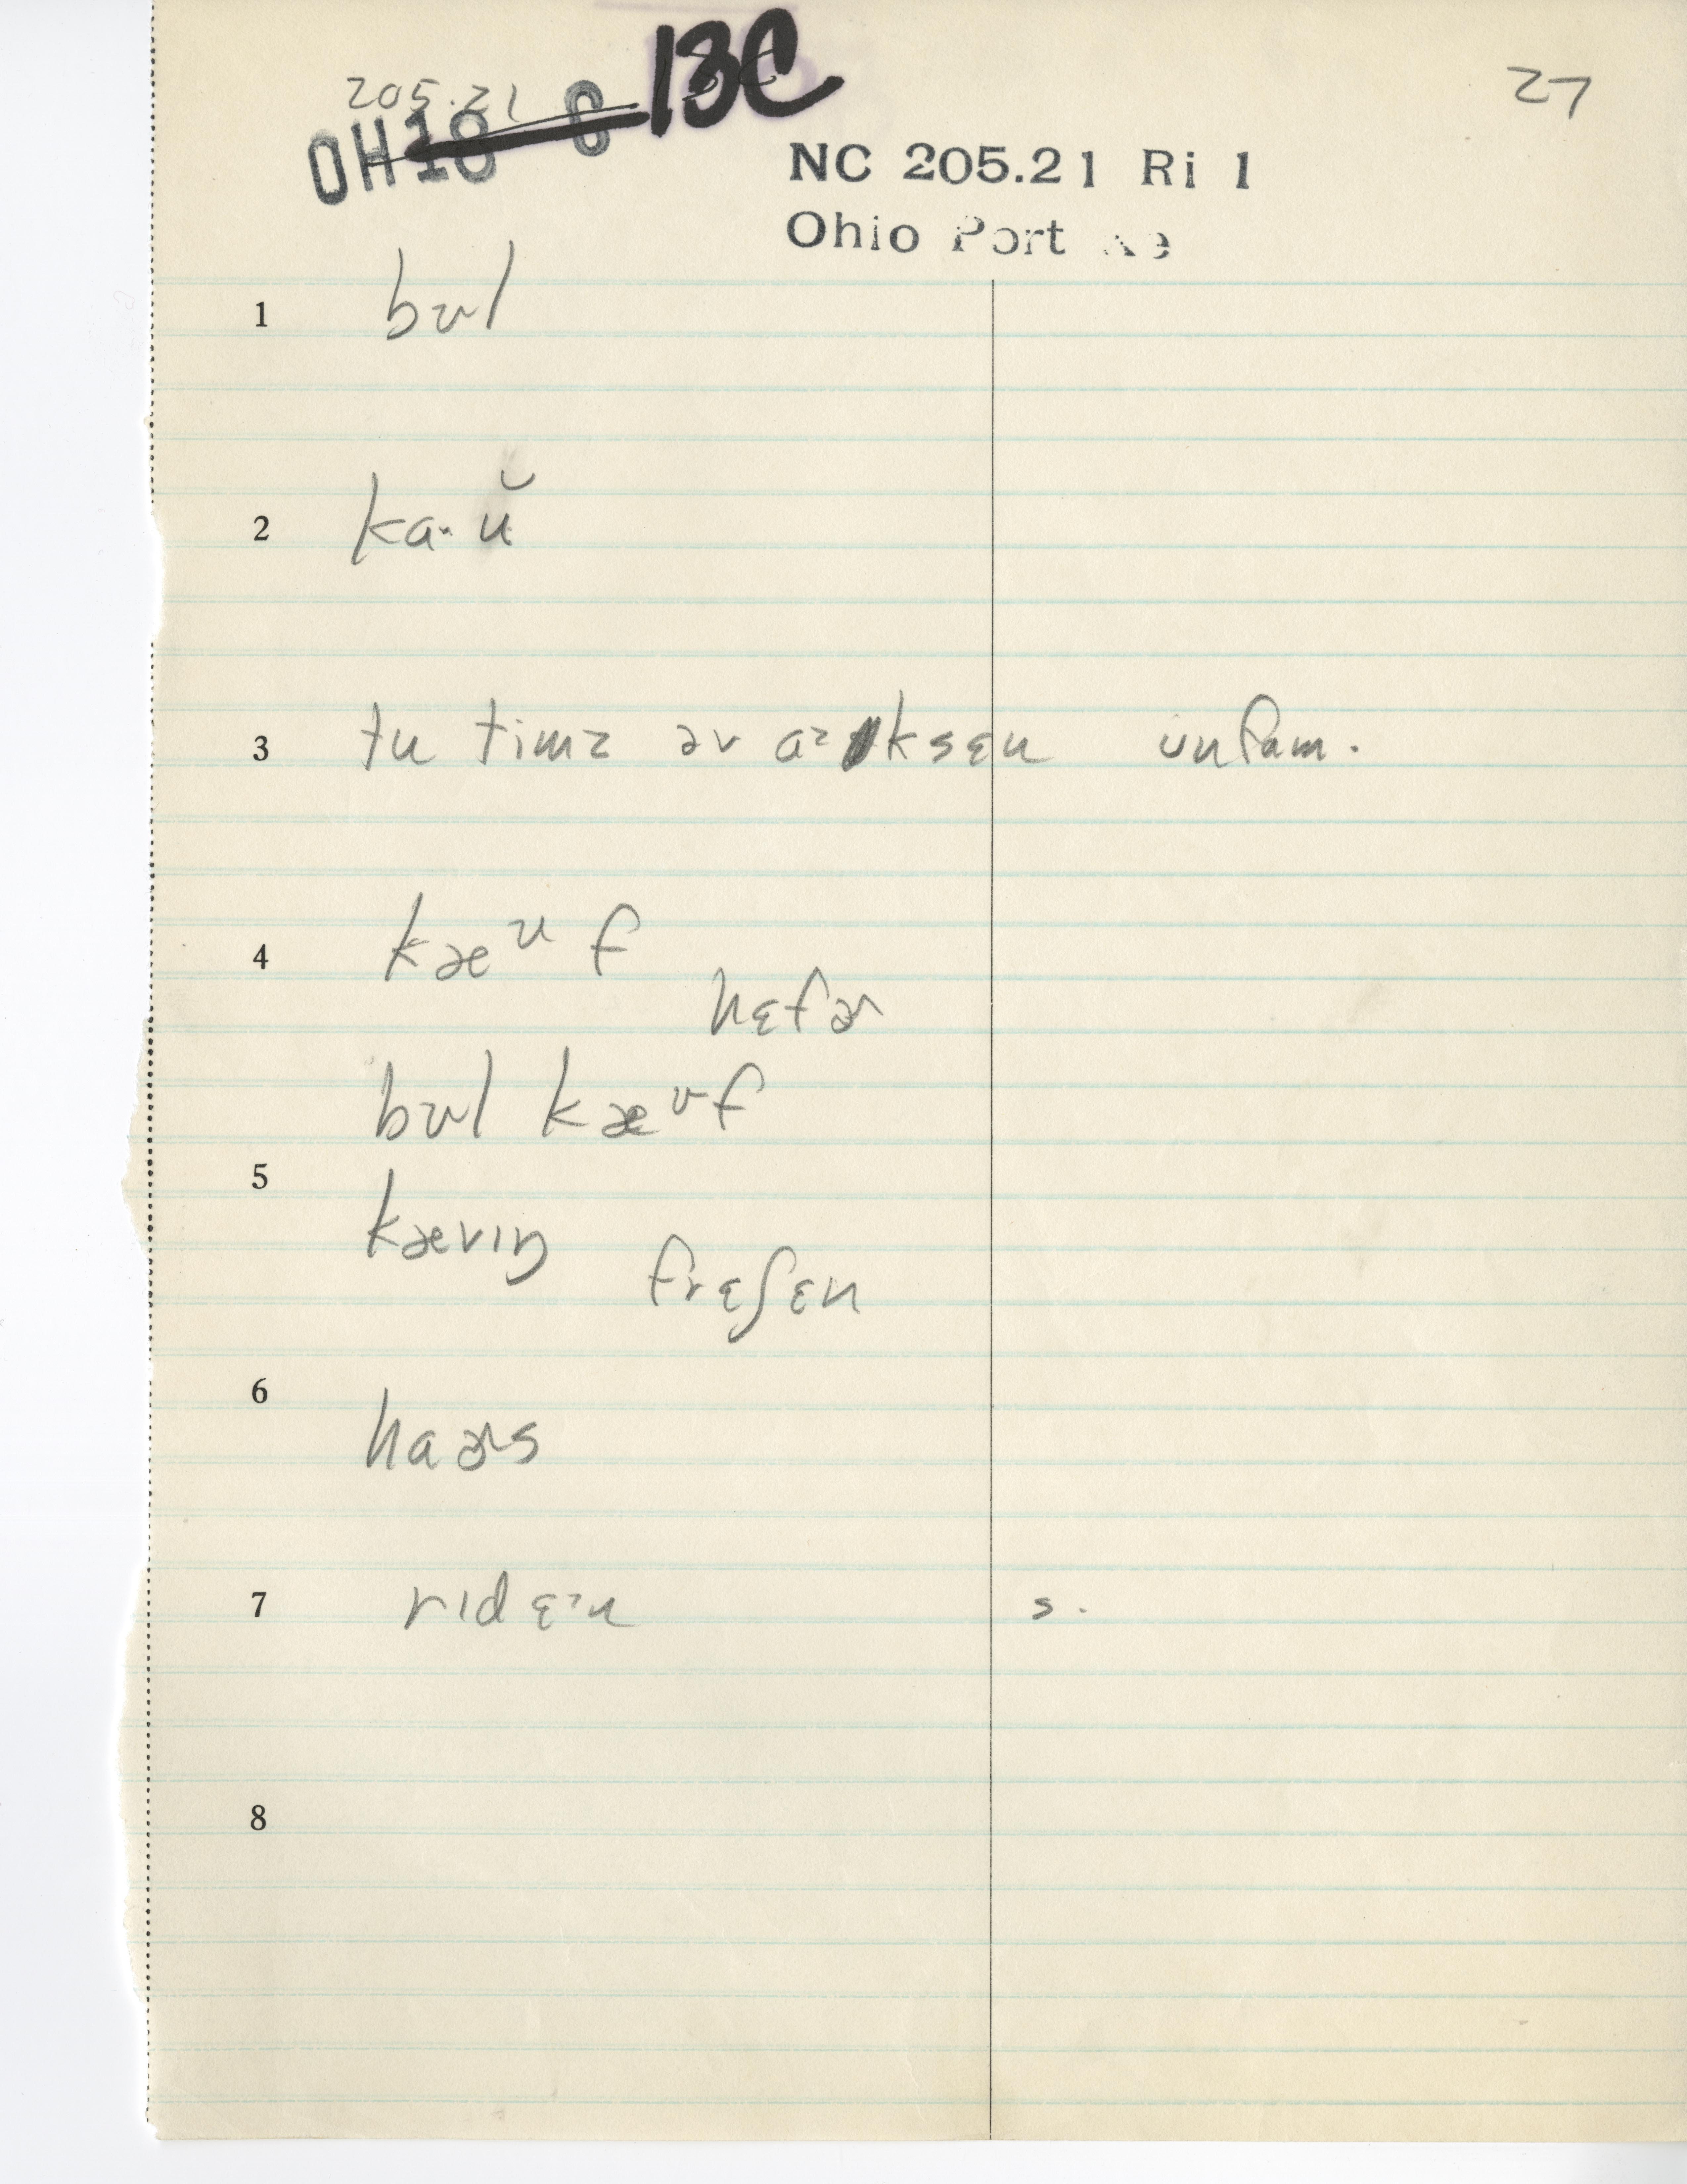 205.21
OH 18 C 13C
27
NC 205.21 Ri 1
Ohio Port
1 bᴜl
2 ka·ŭ
3 tu timz əv aˀksɛn unfam.
4 kæᶷf
hɛfɚ
bᴜl kæᶷf
5 kævɪŋ
frɛʃɛn
6 haɚs
7 rɪdɛˀn s.
8